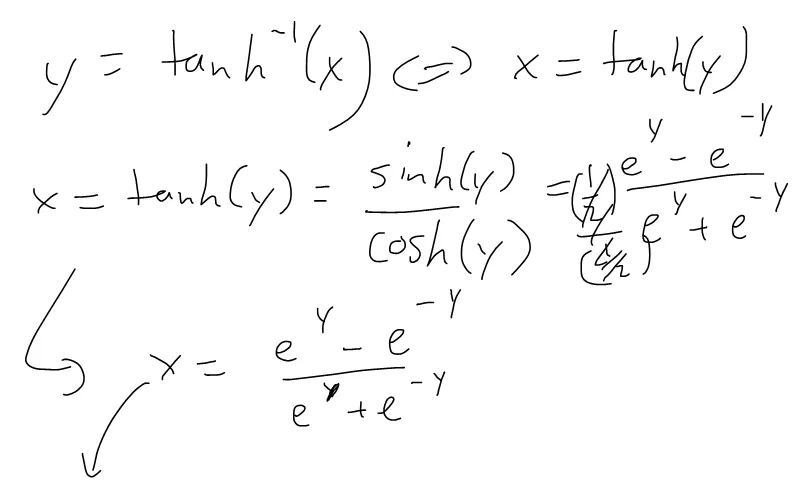 y = tanh⁻¹(x) ⇔ x = tanh(y)
x = tanh(y) = sinh(y)/cosh(y) = (1/2)/(1/2) (e^y - e^-y)/(e^y + e^-y)
x = (e^y - e^-y)/(e^y + e^-y)